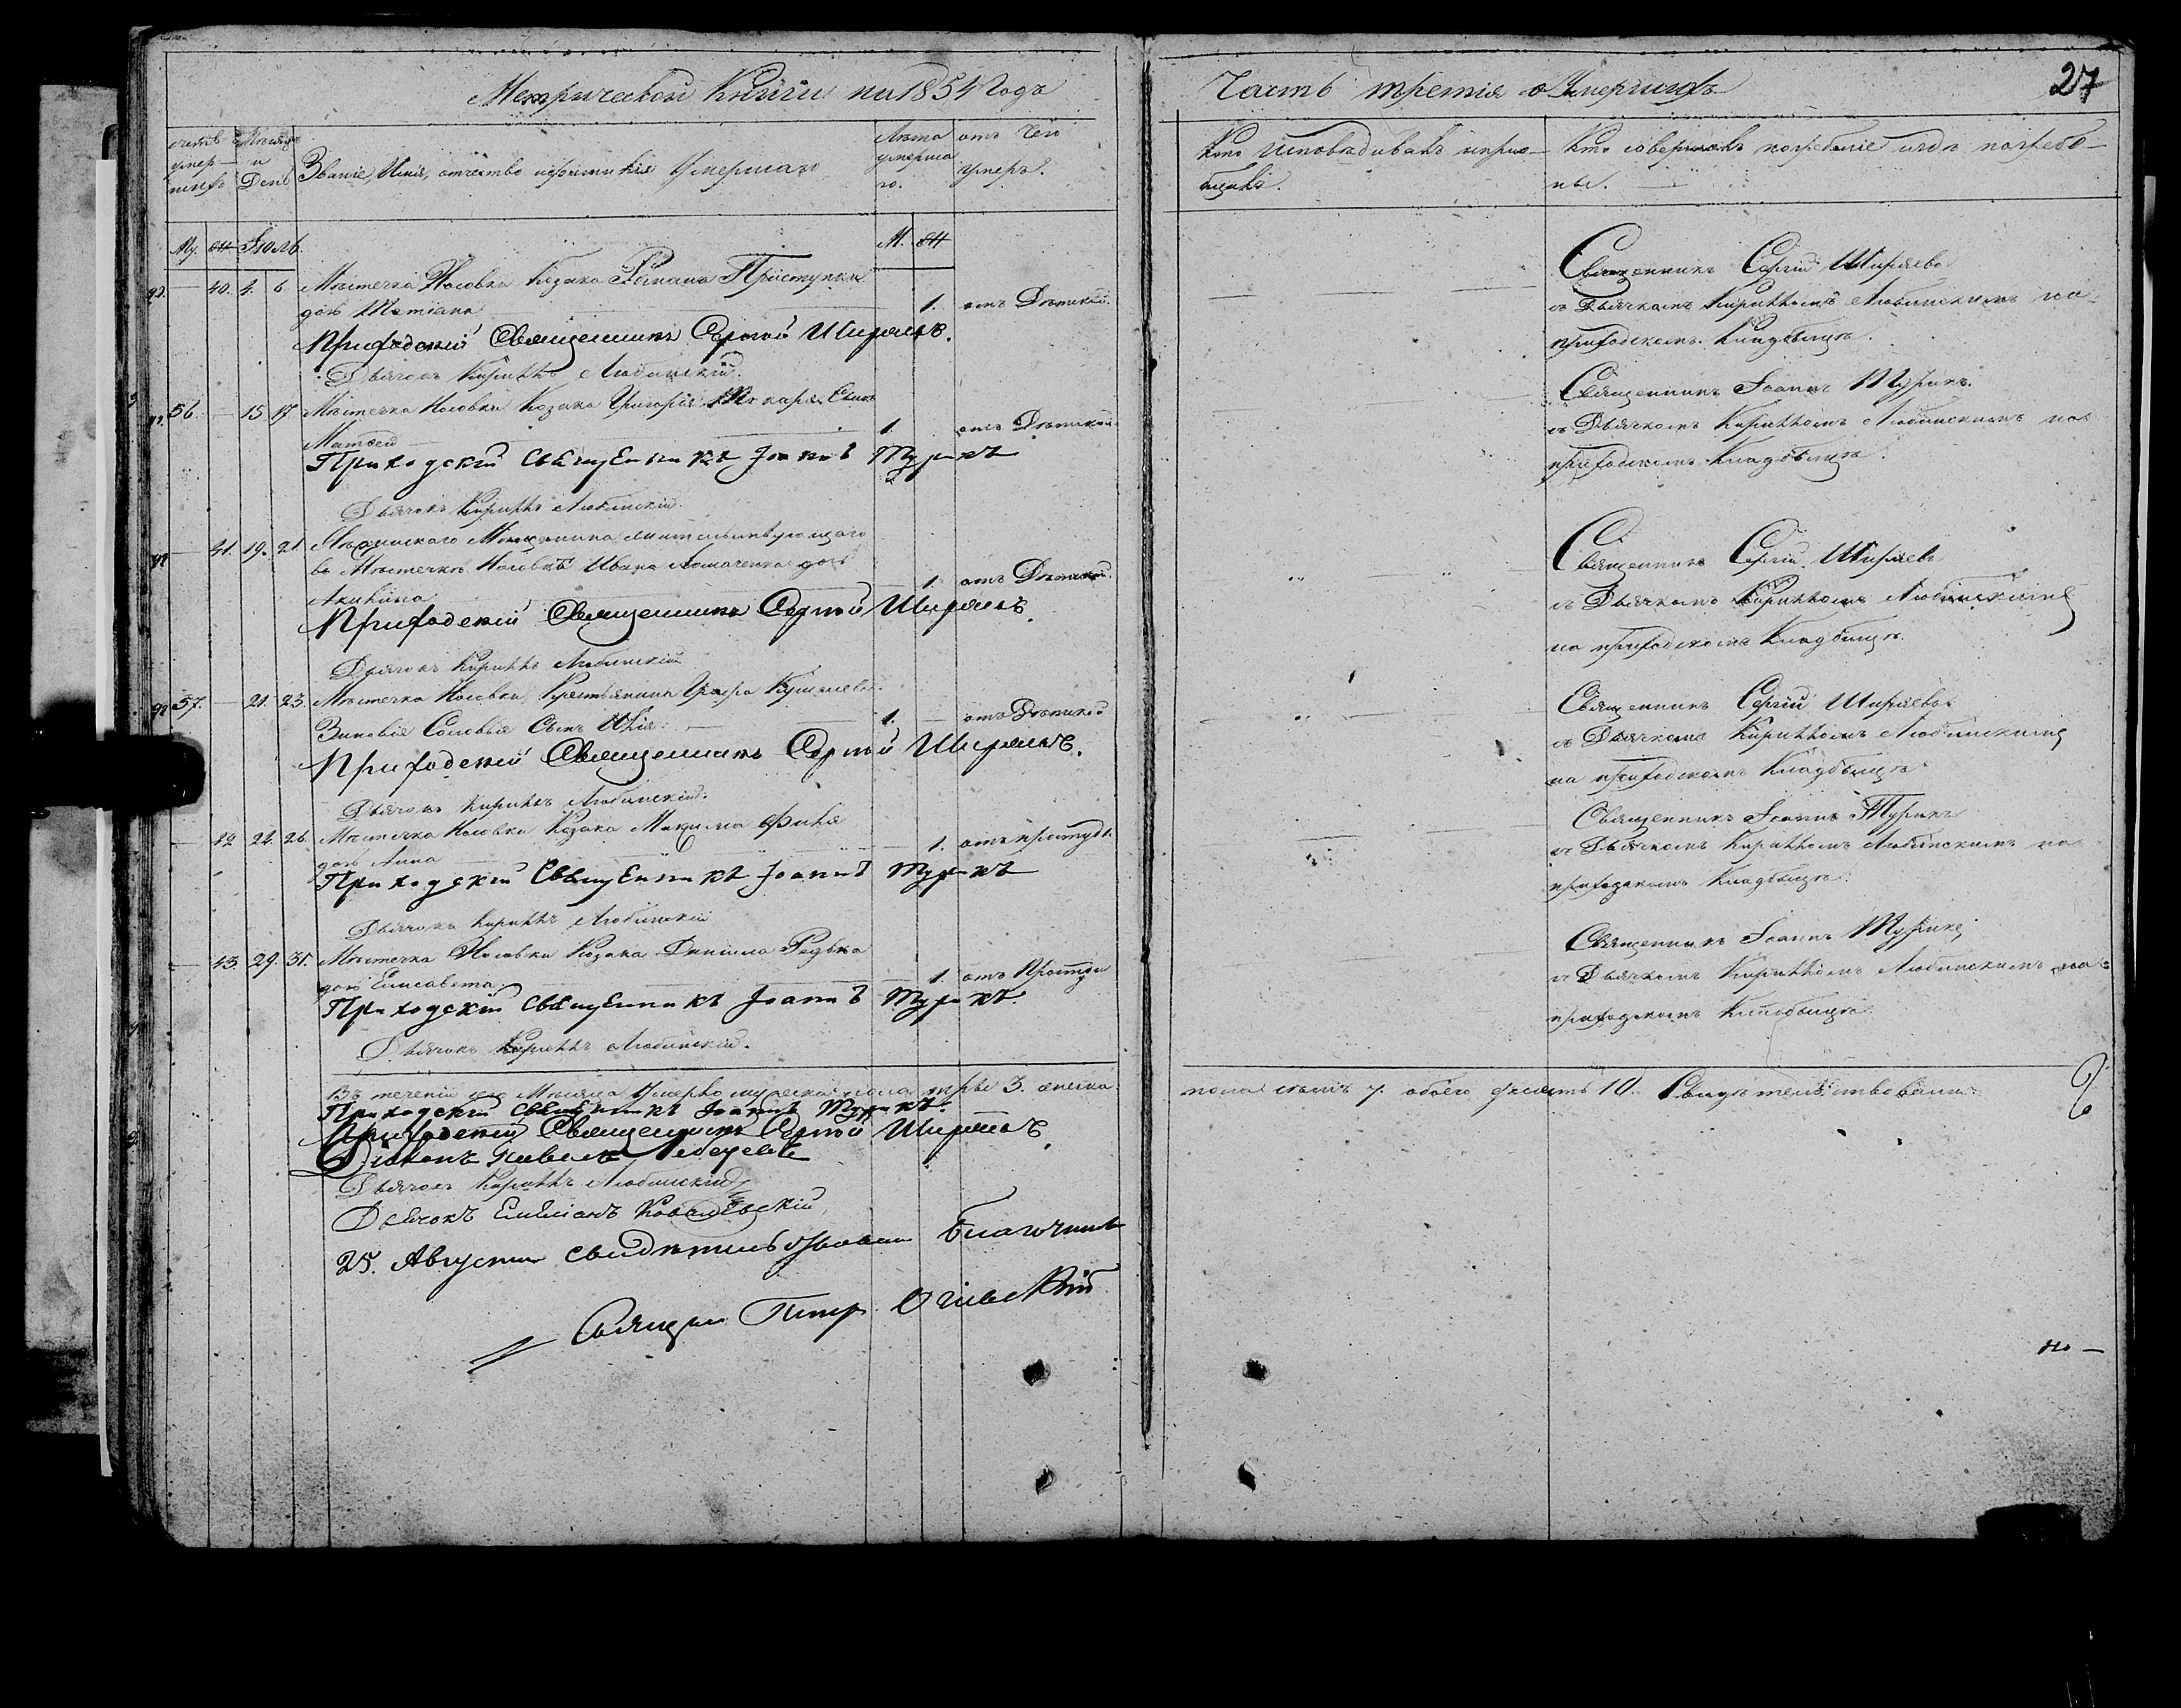 Метрической Книги на 1854 Годъ
Часть третія о Умершихъ
27
счетъ умер-шихъ
Мѣсяцъ и День
Званіе, Имя, отчество и фамилія Умершаго
Лѣта умерша го.
отъ чего умеръ.
Кто исповѣдывалъ и пріо-щалъ.
Кто совершалъ погребеніе и гдѣ погребе-ны.
Му. Іюль. М.
40. 4. 6. Мѣстечка Носовки Козака Романа Приступки
дочь Татіана 1. отъ Дѣтской.
Приходскій Священникъ Сергій Ширяевъ.
Дьячокъ Кириллъ Любинскій.
Священникъ Сергій Ширяевъ
съ Дьячкомъ Кирилломъ Любинскимъ на
приходскомъ Кладбищѣ.
56. — 15. 17. Мѣстечка Носовки Козака Григорія Сынъ
Матѳей 1. отъ Дѣтской.
Приходскій Священникъ Іоаннъ Турикъ
Дьячокъ Кириллъ Любинскій.
Священникъ Іоаннъ Турикъ.
съ Дьячкомъ Кирилломъ Любинскимъ на
приходскомъ Кладбищѣ.
— 41. 19. 21. Мѣщанина жительствующаго
въ Мѣстечкѣ Носовкѣ Ивана дочь
Акилина 1. отъ Дѣтской.
Приходскій Священникъ Сергій Ширяевъ.
Дьячокъ Кириллъ Любинскій
Священникъ Сергій Ширяевъ
съ Дьячкомъ Кирилломъ Любинскимъ
на приходскомъ Кладбищѣ.
57. — 21. 23. Мѣстечка Носовки, Крестьянина Графа Кушелева
Зиновія Соловья Сынъ Илія 1. — отъ Дѣтской
Приходскій Священникъ Сергій Ширяевъ.
Дьячокъ Кириллъ Любинскій.
Священникъ Сергій Ширяевъ
съ Дьячкомъ Кирилломъ Любинскимъ
на приходскомъ Кладбищѣ
— 42 24. 26. Мѣстечка Носовки Козака Максима
дочь Анна 1. отъ простуды.
Приходскій Священникъ Іоаннъ Турикъ
Дьячокъ Кириллъ Любинскій
Священникъ Іоаннъ Турикъ
съ Дьячкомъ Кирилломъ Любинскимъ на
приходскомъ Кладбищѣ.
— 43. 29. 31. Мѣстечка Носовки Козака Даніила Редька
дочь Елисавета. 1. отъ Простуды
Приходскій Священникъ Іоаннъ Турикъ.
Дьячокъ Кириллъ Любинскій.
Священникъ Іоаннъ Турикъ
съ Дьячкомъ Кирилломъ Любинскимъ на
приходскомъ Кладбищѣ.
Въ теченіи сего Мѣсяца Умерло мужеска пола три 3. женска
пола семь 7. обоего десять 10. Свидѣтельствовали.
Приходскій Священникъ Іоаннъ Турикъ.
Приходскій Священникъ Сергій Ширяевъ.
Діаконъ Павелъ Лебедевъ
Дьячокъ Кириллъ Любинскій
Дьячокъ Емиліанъ Ковалевскій
25. Августа свидѣтельствовалъ Благочин
Священ Петр Огіевскій